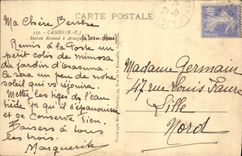 CARTE POSTALE
127. - CAMBO (B.-P.)
Maison Rostand à Arnaga
Ma Chère Berthe
Remis à la Poste un
petit colis de mimosa
du jardin d'
Ce sera un peu de notre
soleil qui vs réjouira.
Mettez les tiges de l'eau
tiède ps qu'il s'épanouisse
et se conserve bien.
Baisers à tous
les trois.
Marguerite
Madame Germain
47 rue Louis Faure
Lille
Nord